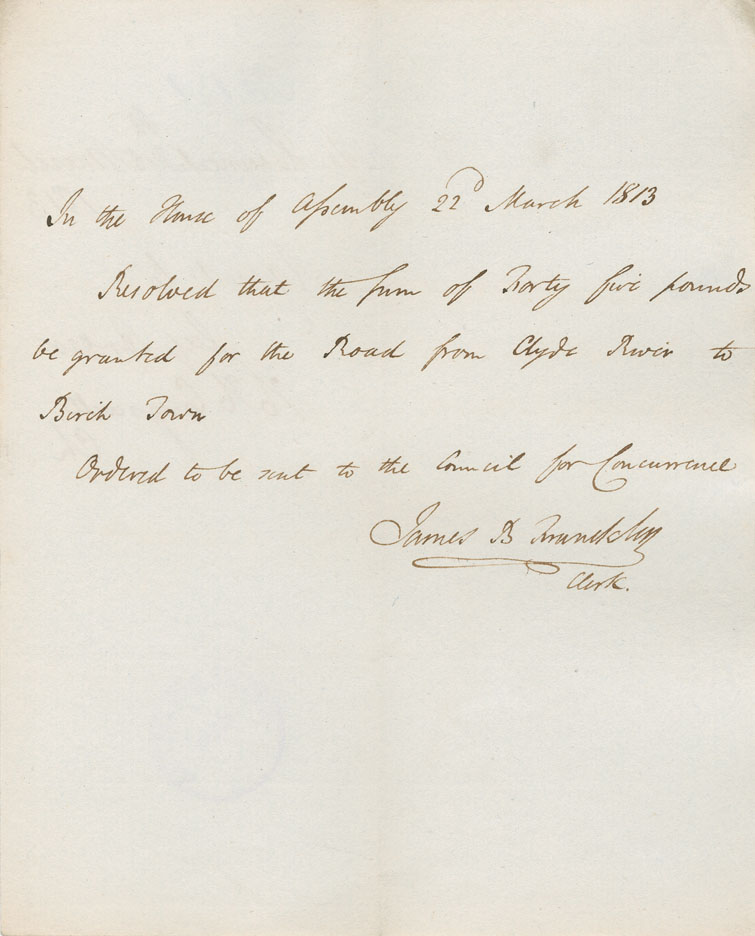 In the House of Assembly 22d March 1813
Resolved that the sum of Forty five pounds
be granted for the Road from Clyde River to
Birch Town
Ordered to be sent to the Council for Concurrence
James B Francklin
Clerk.